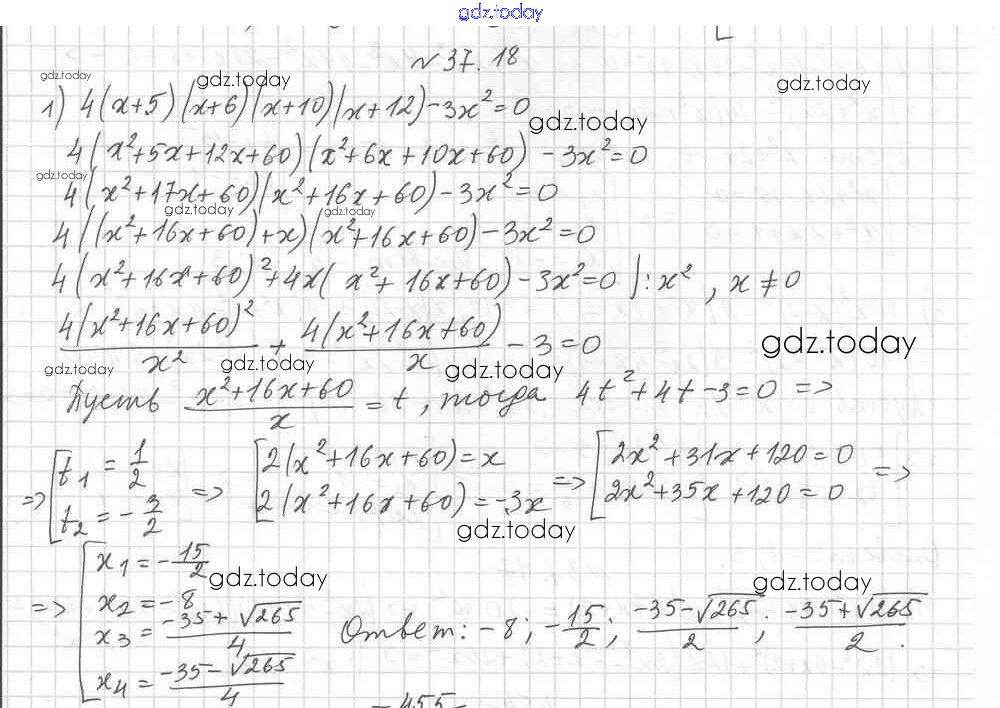 gdz.today
№37.18
gdz.today gdz.today gdz.today
1) 4(x+5)(x+6)(x+10)(x+12)-3x²=0
gdz.today
4(x²+5x+12x+60)(x²+6x+10x+60)-3x²=0
gdz.today
4(x²+17x+60)(x²+16x+60)-3x²=0
gdz.today gdz.today
4((x²+16x+60)+x)(x²+16x+60)-3x²=0
4(x²+16x+60)²+4x(x²+16x+60)-3x²=0 |:x², x≠0
4(x²+16x+60)²/x² + 4(x²+16x+60)/x - 3=0
gdz.today
gdz.today gdz.today gdz.today
Пусть (x²+16x+60)/x = t, тогда 4t²+4t-3=0 =>
=> [t₁ = 1/2 => [2(x²+16x+60)=x => [2x²+31x+120=0 =>
t₂ = -3/2 2(x²+16x+60)=-3x 2x²+35x+120=0
gdz.today
[x₁ = -15/2
gdz.today gdz.today
=> x₂ = -8
x₃ = (-35+√265)/4 Ответ: -8; -15/2; (-35-√265)/2; (-35+√265)/2.
x₄ = (-35-√265)/4